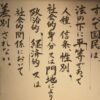 すべて国民は
法の下に平等であって
人種、信条、性別、
社会的身分又は門地により
政治的、経済的又は
社会的関係において
差別されない。